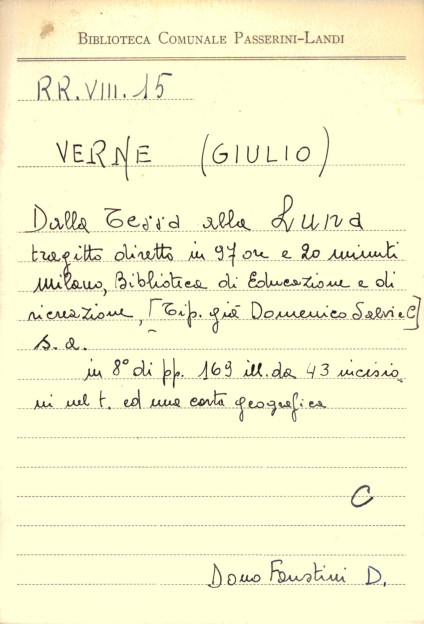 BIBLIOTECA COMUNALE PASSERINI-LANDI
RR.VIII.15
VERNE (GIULIO)
Dalla Terra alla Luna
tragitto diretto in 97 ore e 20 minuti
Milano, Biblioteca di Educazione e di
ricreazione, [Tip. già Domenico Salvi e C]
s. a.
in 8° di pp. 169 ill. da 43 incisio_
ni nel t. ed una carta geografica
C
Dono Faustini D.